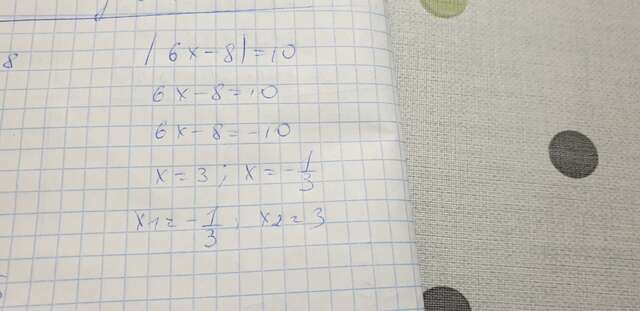 8
|6x-8|=10
6x-8=10
6x-8=-10
x=3; x=-1/3
x1=-1/3; x2=3